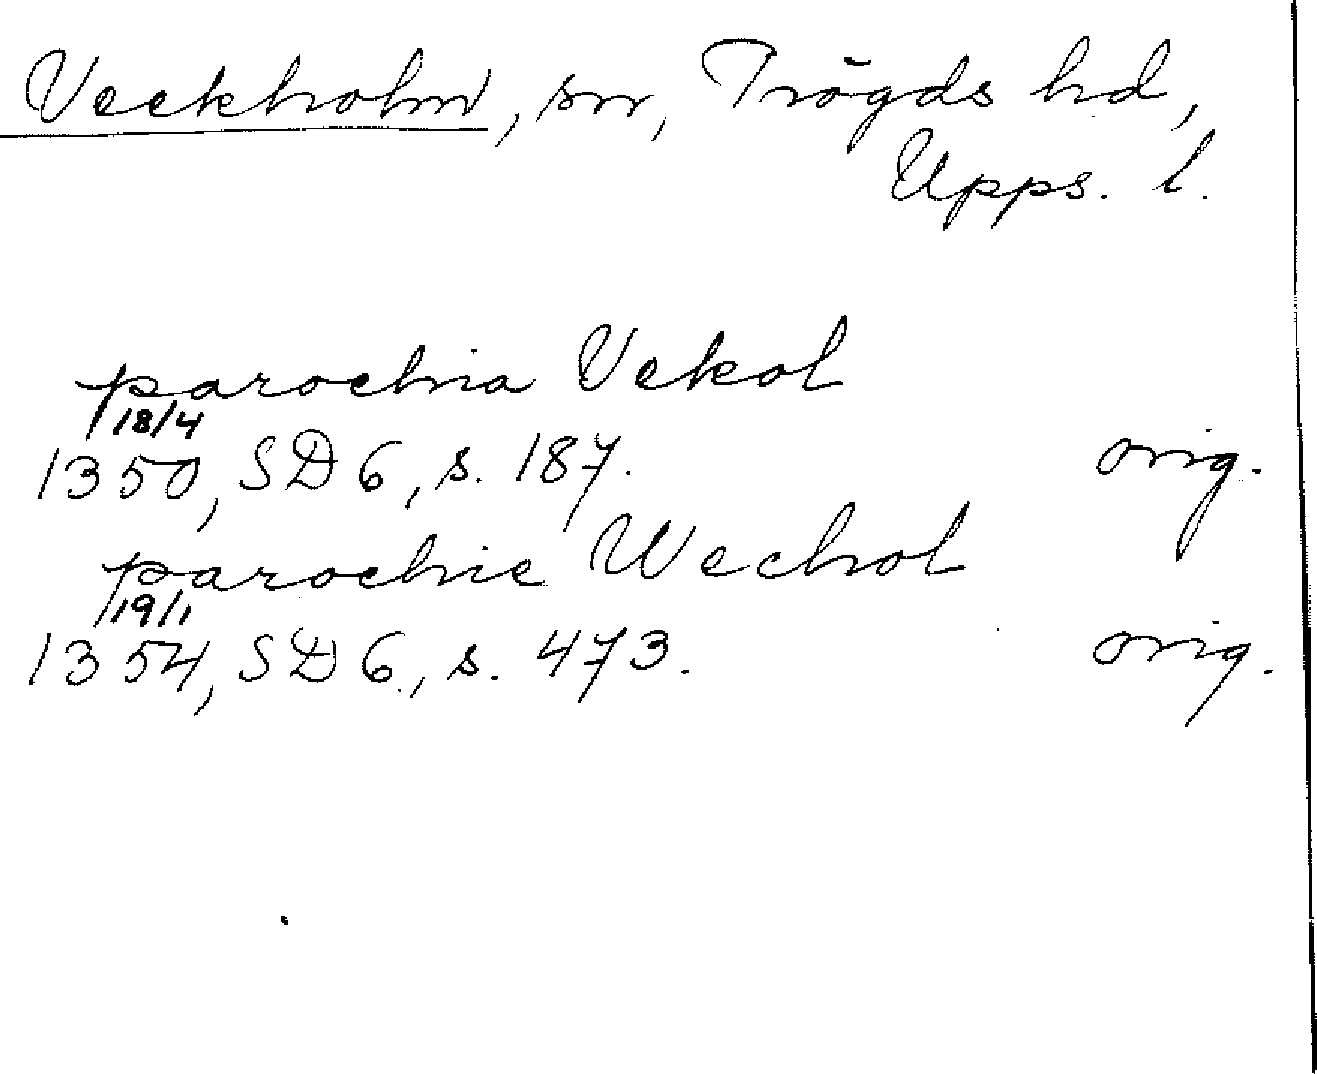 Veckholm, sn, Trögds hd,
Upps. l.
parochia Vekol
18/4
1350, SD 6, s. 187. orig.
parochie Wechol
19/1
1354, SD 6, s. 473. orig.